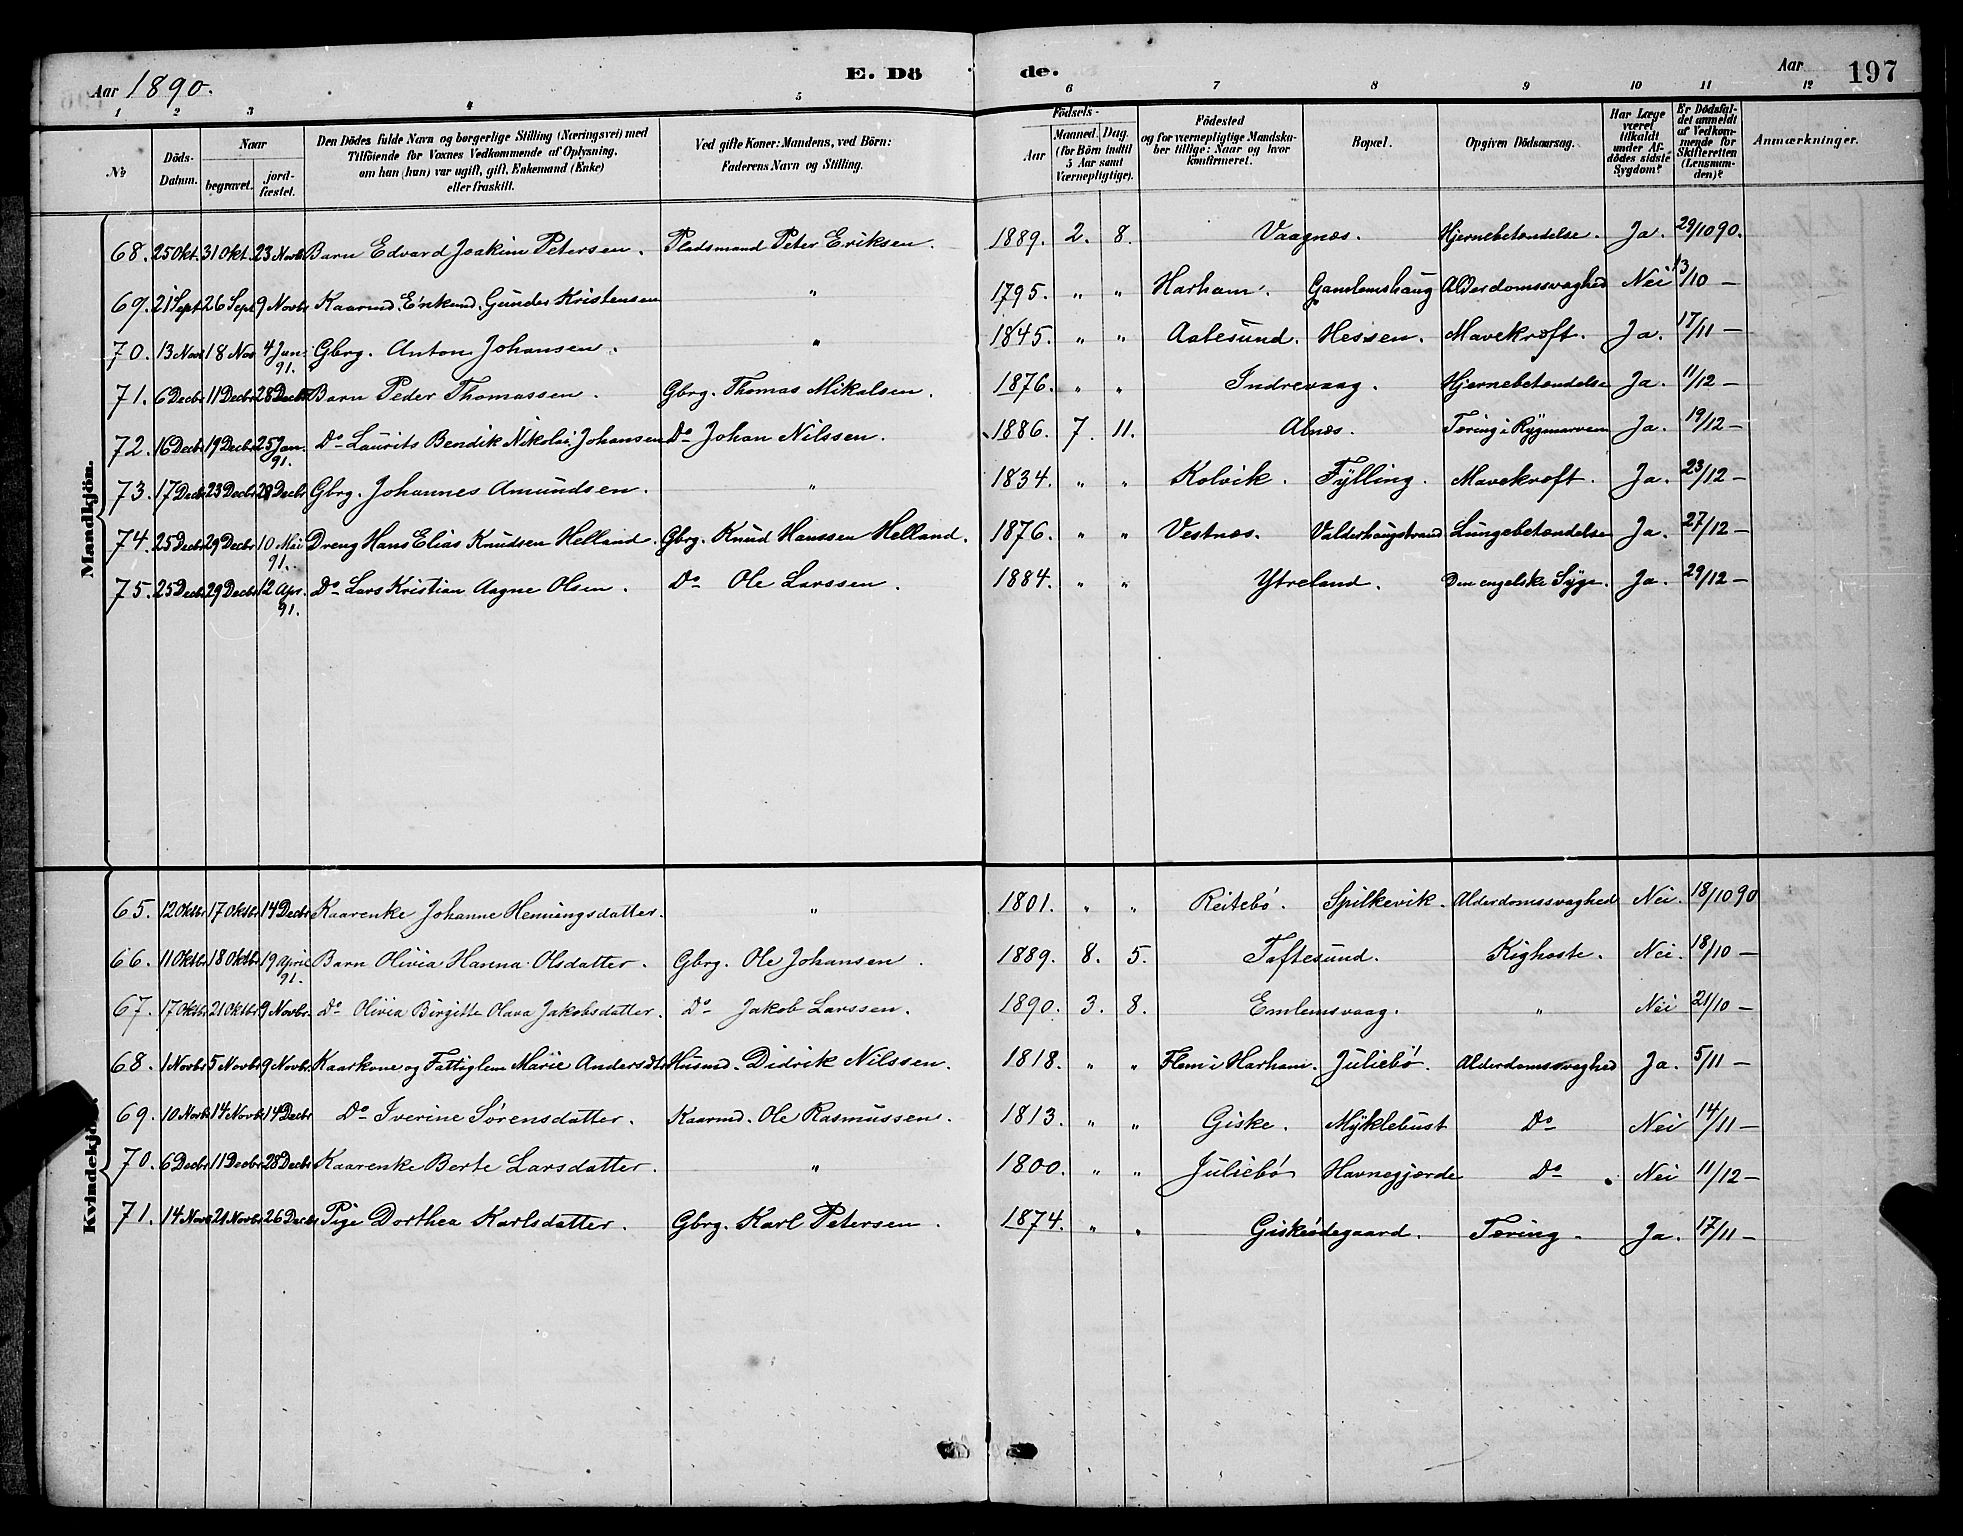 Aar 1890. E. Döde. Aar 197
1 2 3 4 5 6 7 8 9 10 11 12
№ Döds-Datum. Naar begravet. jordfæstet. Den Dödes fulde Navn og borgerlige Stilling (Næringsvei) med Tilföiende for Voxnes Vedkommende af Oplysning, om han (hun) var ugift, gift, Enkemand (Enke) eller fraskilt. Ved gifte Koner: Mandens, ved Börn: Faderens Navn og Stilling. Födsels- Aar Maaned. Dag. (for Börn indtil 5 Aar samt Værnepligtige). Födested og for værnepligtige Mandskaber tillige: Naar og hvor konfirmeret. Bopæl. Opgiven Dödsaarsag. Har Læge været tilkaldt under Afdödes sidste Sygdom? Er Dödsfaldet anmeldt af Vedkommende for Skifteretten (Lensmanden)? Anmærkninger.
Mandkjön.
68. 25 Okt. 31 Okt. 23 Novb. Barn Edvard Joakim Petersen. Pladsmand Peter Eriksen. 1889. 2. 8. Vaagnæs. Hjernebetændelse. Ja. 29/10 90.
69. 21 Sept 26 Sept 9 Novbr Kaarmd. Enkemd. Gunder Kristensen " 1795. " " Harham. Gamlemshaug Alderdomssvaghed Nei 13/10 —
70. 13 Nov 18 Nov 4 Jan. 91. Gbrg. Anton Johansen. " 1845. " " Aalesund. Hessen. Mavekræft. Ja. 17/11 —
71. 6 Decbr 11 Decbr 28 Decbr Barn Peder Thomassen. Gbrg. Thomas Mikalsen. 1876. " " Indrevaag. Hjernebetændelse Ja. 11/12 —
72. 16 Decbr 19 Decbr 25 Jan. 91. Do Laurits Bendik Nikolai Johansen Do Johan Nilssen. 1886. 7. 11. Alnæs. Tæring i Rygmarven Ja. 19/12 —
73. 17 Decbr 23 Decbr 28 Decbr Gbrg. Johannes Amundsen. " 1834. " " Kolvik. Fylling. Mavekræft. Ja. 23/12 —
74. 25 Decbr 29 Decbr 10 Mai 91. Dreng Hans Elias Knudsen Helland. Gbrg. Knud Hanssen Helland. 1876. " " Vestnæs. Valderhaugstrand Lungebetændelse Ja. 27/12 —
75. 25 Decbr 29 Decbr 12 Apr. 91. Do Lars Kristian Aagne Olsen. Do Ole Larssen. 1884. " " Ytreland. Den engelske Syge. Ja. 29/12 —
Kvindekjön.
65. 12 Oktbr 17 Oktbr 14 Decbr Kaarenke Johanne Henningsdatter. " 1801. " " Reitebø. Spilkevik. Alderdomssvaghed Nei. 18/10 90
66. 11 Oktbr 18 Oktbr 19 April 91. Barn Olivia Hanna Olsdatter. Gbrg. Ole Johansen. 1889. 8. 5. Toftesund. Kighoste. Nei. 18/10 —
67. 17 Oktbr 21 Oktbr 9 Novbr. Do Olivia Birgitte Olava Jakobsdatter. Do Jakob Larssen. 1890. 3. 8. Emlemsvaag. " Nei 21/10 —
68. 1 Novbr 5 Novbr 9 Novbr. Kaarkone og Fattiglem Marie Andersdtr Husmd. Didrik Nilssen. 1818. " " Flem i Harham. Juliebø. Alderdomssvaghed Ja. 5/11 —
69. 10 Novbr 14 Novbr 14 Decbr Do Iverine Sørensdatter. Kaarmd. Ole Rasmussen. 1813. " " Giske. Myklebust Do Nei 14/11 —
70. 6 Decbr 11 Decbr 28 Decbr Kaarenke Berte Larsdatter. " 1800. " " Juliebø Havnegjærde Do Nei 11/12 —
71. 14 Novb 21 Novbr 26 Decbr Pige Dorthea Karlsdatter. Gbrg. Karl Petersen. 1874. " " Giskeødegaard. Tæring. Ja. 17/11 —